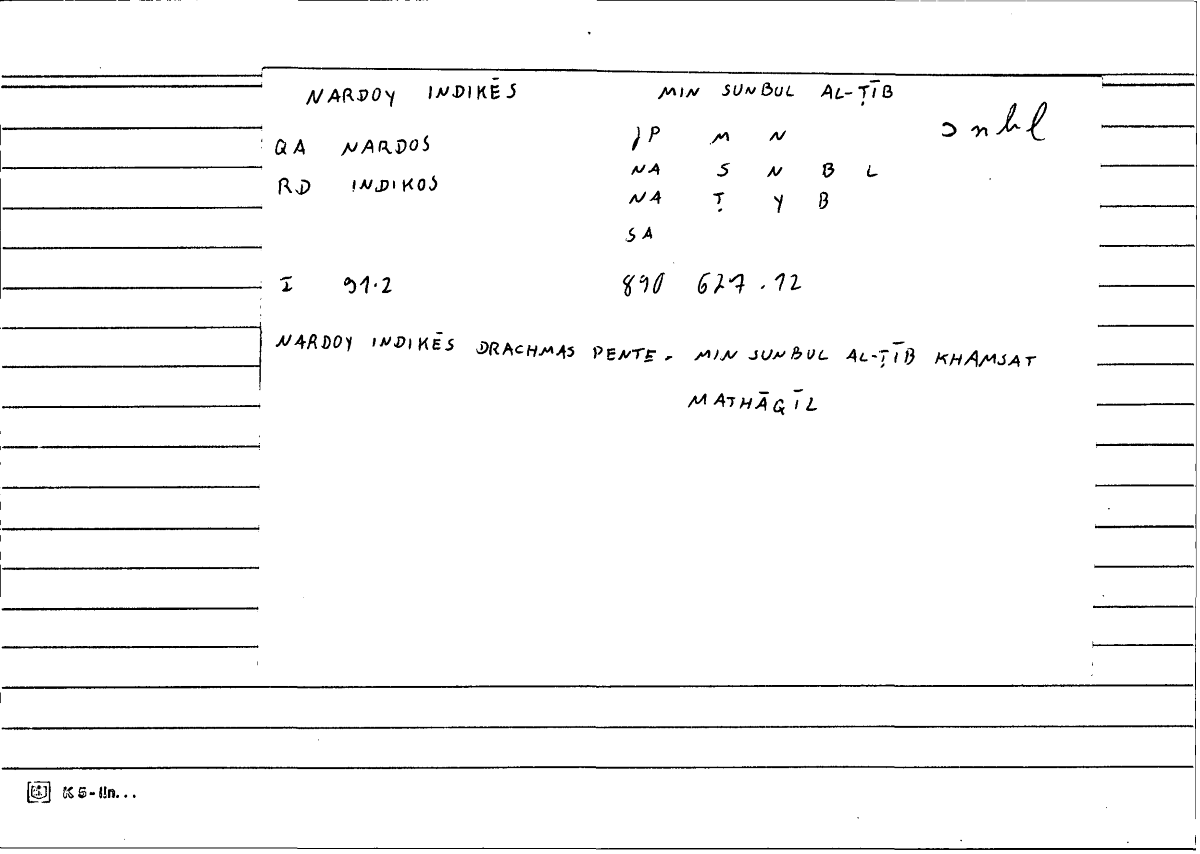 NARDOY INDIKĒS MIN SUNBUL AL-ṬĪB
snbl
QA NARDOS JP M N
NA S N B L
RD INDIKOS NA Ṭ Y B
SA
I 91.2 890 627.12
NARDOY INDIKĒS DRACHMAS PENTE. MIN SUNBUL AL-ṬĪB KHAMSAT
MATHĀQĪL
K5-lin...